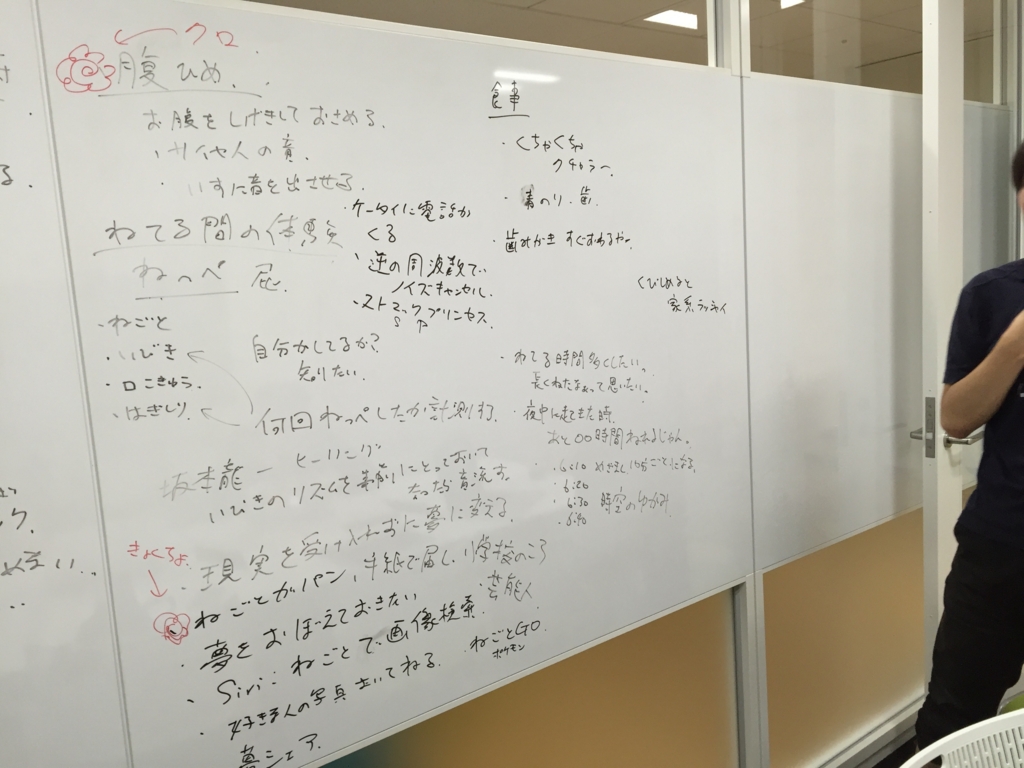 クロ
腹ひめ.
お腹をしげきしておさめる.
・サイヤ人の音.
・いすに音を出させる.
ねてる間の体験
ねっぺ 屁.
・ねごと
・いびき
・口こきゅう.
・はぎしり
自分がしてるか?
知りたい.
何回ねっぺしたか計測する.
・ケータイに電話が
くる
・逆の周波数で
ノイズキャンセル.
・ストマックプリンセス.
S P
坂本龍一 ヒーリング
いびきのリズムを事前にとっておいて
音流す.
・現実を受け入れずに夢に変える
きょくちょ
ねごとがパン, 手紙で届く, 学校のころ
・夢をおぼえておきたい ・芸能人
・Siri: ねごとで画像検索.
好きな人の写真 いてねる. ねごとGO.
ポケモン
夢シェア
食事
・くちゃくちゃ
クチャラー.
・青のり・歯.
・歯みがき すぐ
くびしめると
家系ラッセイ
・ねてる時間多くしたい.
長くねたなぁって思いたい.
・夜中に起きた時.
あと〇〇時間ねれるじゃん.
・6:10
・6:20
・6:30 時空のゆがみ
・6:40